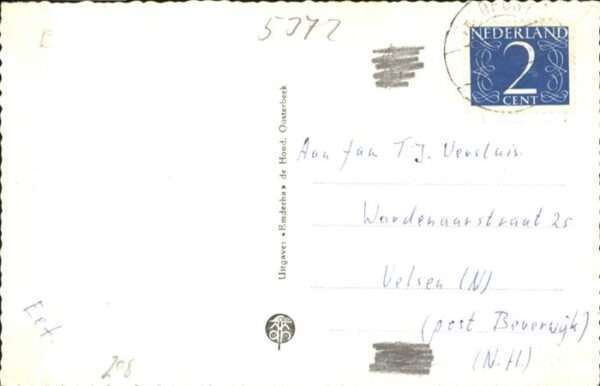 5372
NEDERLAND
2
CENT
Uitgave: «Emderha» de Hond, Oosterbeek
Aan fam T.J. Versluis
Wardenaarstraat 25
Velsen (N)
(post Beverwijk)
(N.H.)
Eet.
208